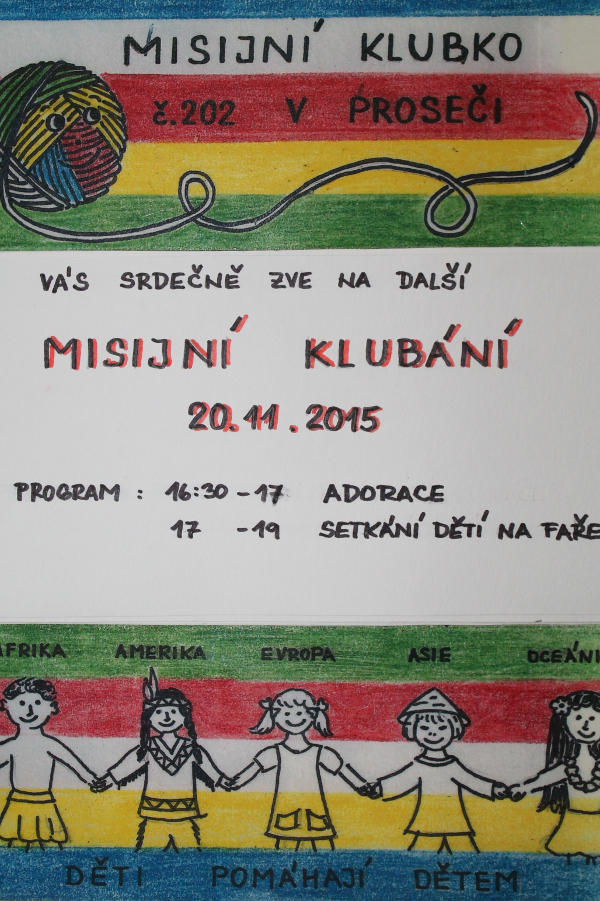 MISIJNÍ KLUBKO
č.202 V PROSEČI
VÁS SRDEČNĚ ZVE NA DALŠÍ
MISIJNÍ KLUBÁNÍ
20.11.2015
PROGRAM : 16:30 - 17 ADORACE
17 - 19 SETKÁNÍ DĚTÍ NA FAŘE
AFRIKA AMERIKA EVROPA ASIE OCEÁNI
DĚTI POMÁHAJÍ DĚTEM